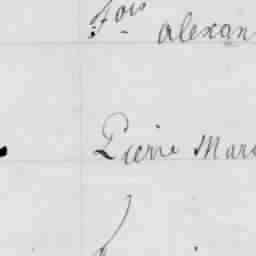 fois
Alexan
Pierre Mari